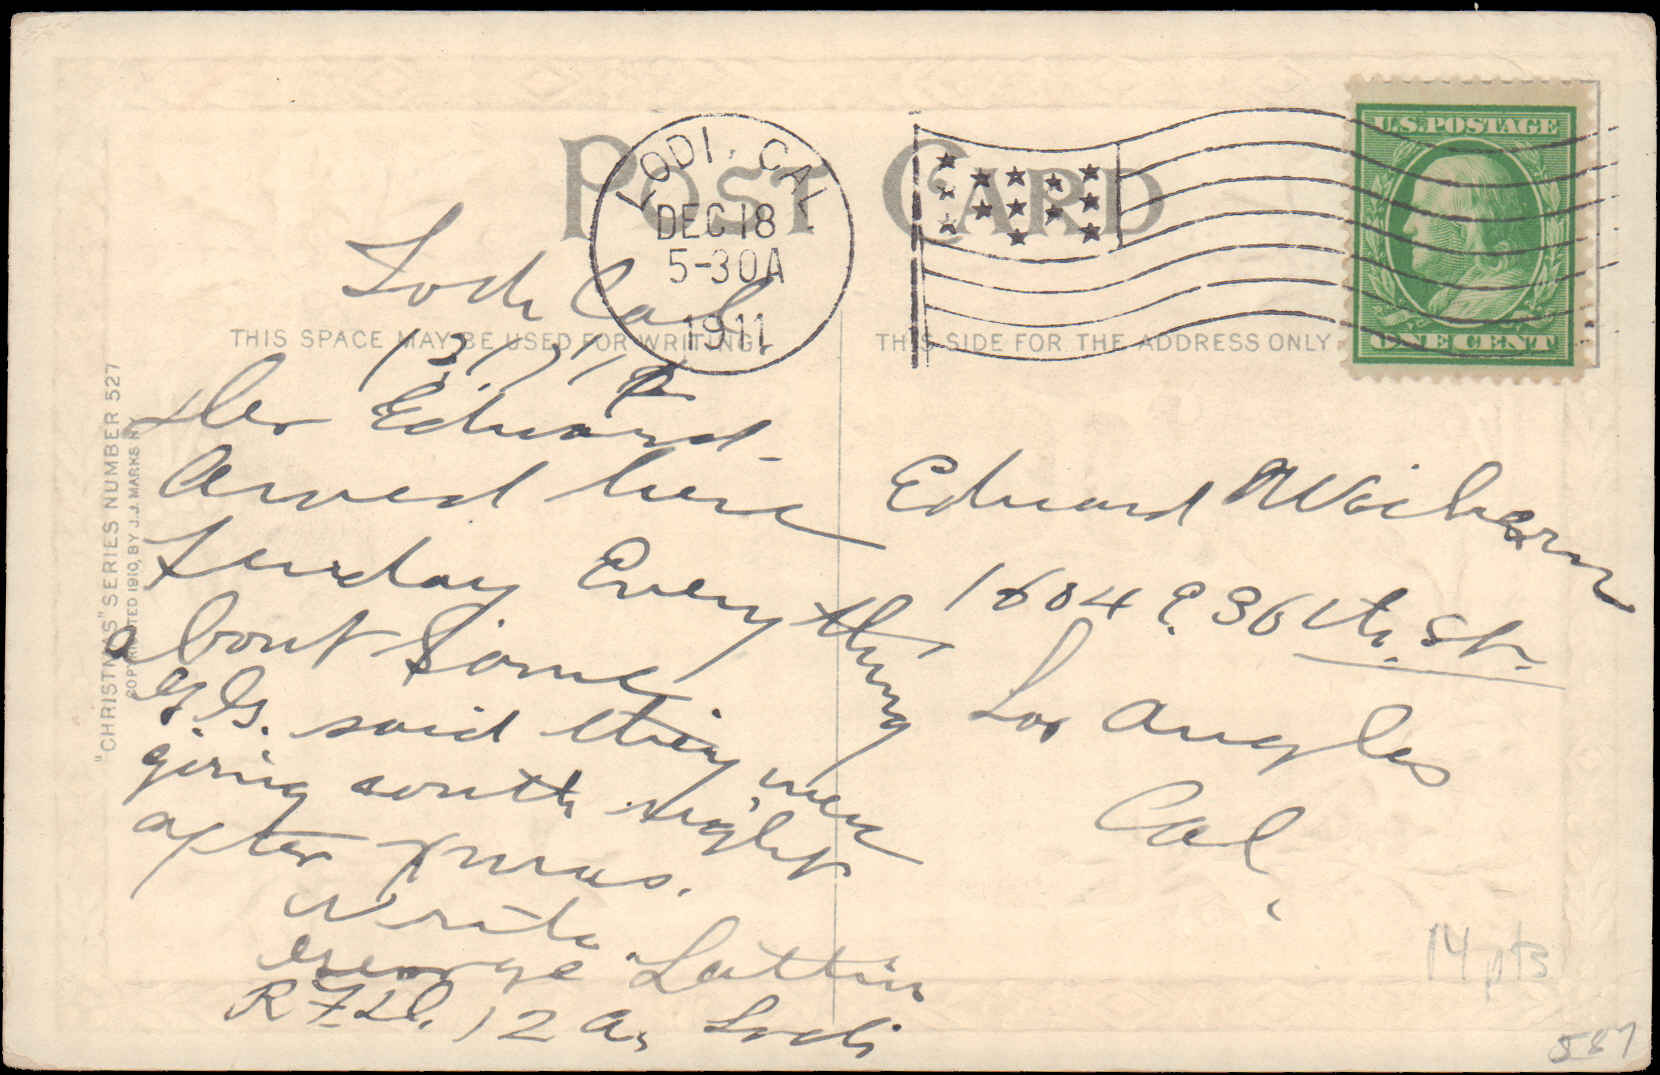 POST CARD
LODI, CAL.
DEC 18
5-30A
1911
U.S. POSTAGE
ONE CENT
THIS SPACE MAY BE USED FOR WRITING.
THIS SIDE FOR THE ADDRESS ONLY
"CHRISTMAS" SERIES NUMBER 527
COPYRIGHTED 1910, BY J.J. MARKS N.Y.
Lodi Cal
Der Edward.
Arived here
Sunday Every thing
about Same
G.G. said they were
going south right
after xmas.
Write
George Lattin
R.F.D. 12 A, Lodi
Edward
1604 E. 36th. St.
Los Angles
Cal.
14 pts
587